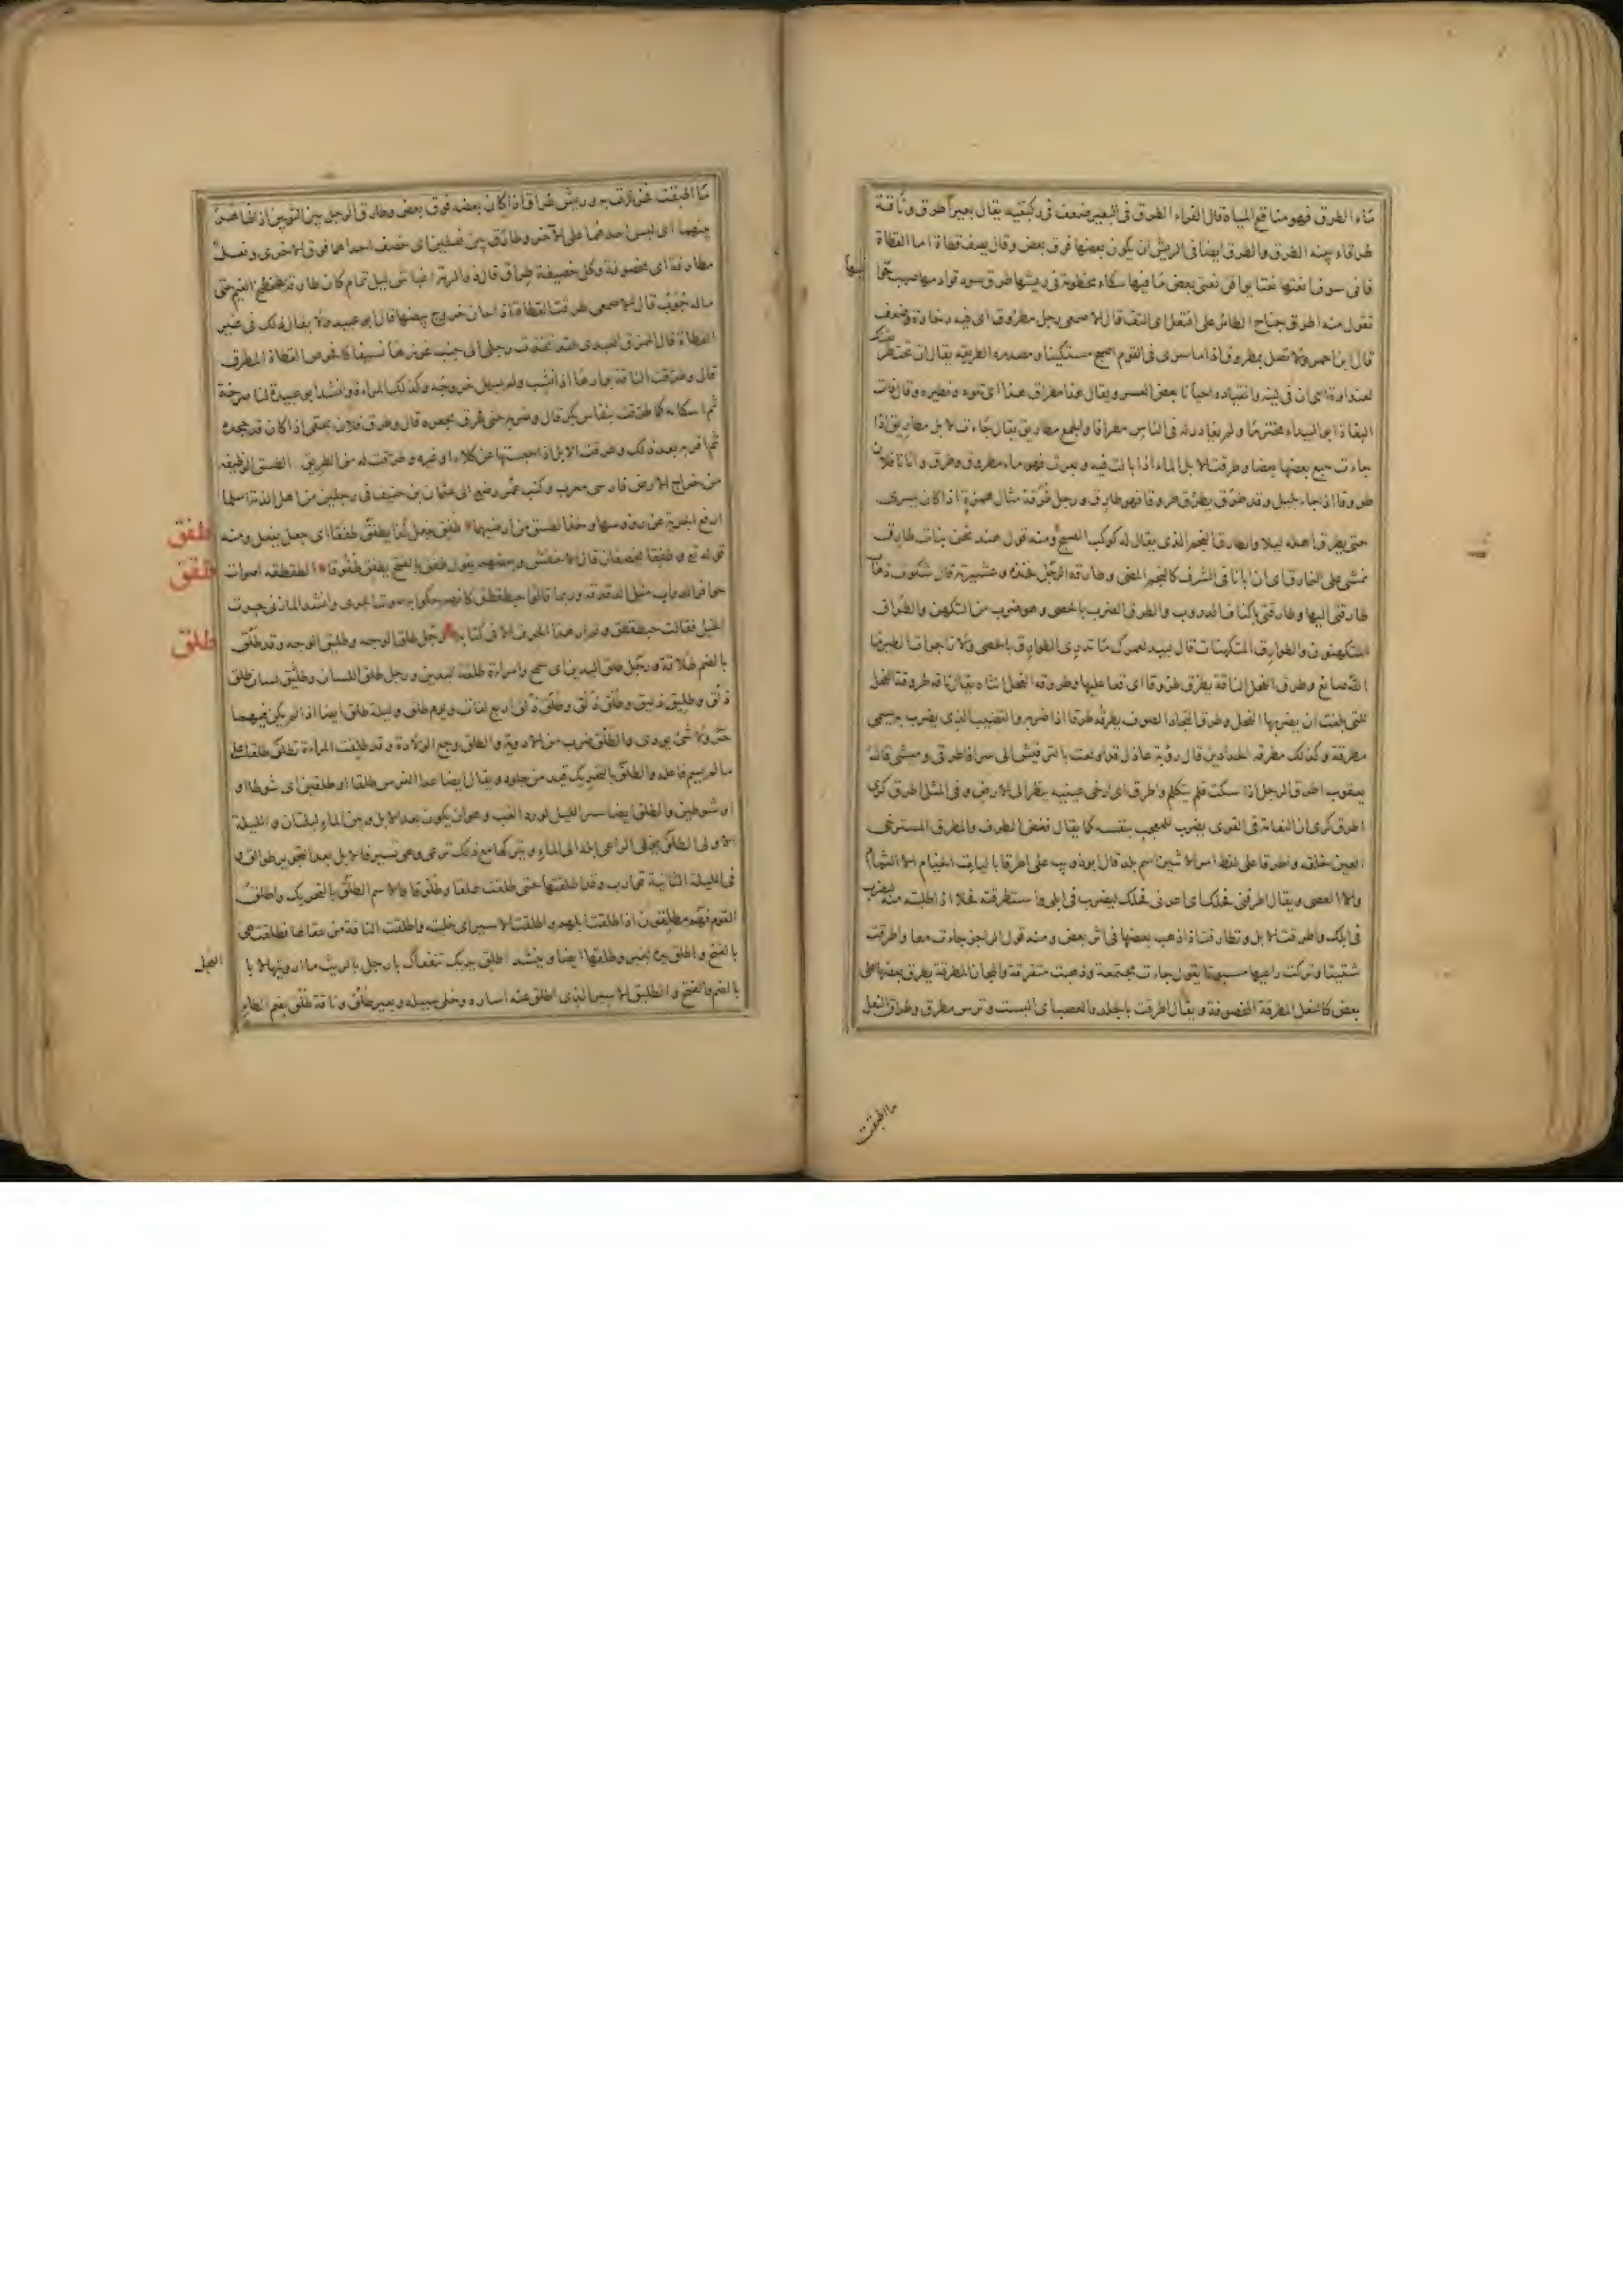 ماء الطرق فهو مناقع المياه قال الفراء الطرق في البعير ضعف في ركبتيه يقال بعير اطرق وناقة
طرقاء بينه الطرق والطرق ايضا في الريش ان يكون بعضها فوق بعض وقال يصف قطاة اما القطاة
فاني سوف انعتها نعتا يوافق نعتي بعض ما فيها سكاء مخطومة في ريشها طرق سود قوادمها صهب
تقول منه اطرق جناح الطائر على افتعل اى التف قال الاصمعى رجل مطروق اى فيه رخاوة وضعف
قال ابن احمر ولا تصل بمطروق اذا ما سرى في القوم اصبح مستكينا ومصدره الطريقه يقال ان تحت
لعنداوة اى ان في لينه وانقياده احيانا بعض العسر ويقال هذا مطراق هذا اى تلوه ونظيره وقال فات
البغاة ابو البيداء محتزما ولم يغادر له في الناس مطراقا والجمع مطاريق يقال جاءت الابل مطاريق اذا
جاءت يتبع بعضها بعضا وطرقت الابل الماء اذا بالت فيه وبعرت فهو ماء مطروق وطرق واتانا فلان
طروقا اذا جاء بليل وقد طرق يطرق طروقا فهو طارق ورجل طرقة مثال همزة اذا كان يسرى
حتى يطرق اهله ليلا والطارق النجم الذى يقال له كوكب الصبح ومنه قول هند نحن بنات طارق
نمشى على النمارق اى ان ابانا في الشرف كالنجم المضى وطارقة الرجل فخذه وعشيرته قال شكوت ذهاب
طارقتى اليها وطارقتى باكناف الدروب والطرق الضرب بالحصى وهو ضرب من التكهن والطراق
المتكهنون والطوارق المتكهنات قال لبيد لعمرك ما تدرى الطوارق بالحصى ولا زاجرات الطير ما
الله صانع وطرق الفحل الناقة يطرق طروقا اى قعا عليها وطروقة الفحل انثاه يقال ناقه طروقة الفحل
للتى بلغت ان يضربها الفحل وطرق النجاد الصوف يطرقه طرقا اذا ضربه والقضيب الذى يضرب به يسمى
مطرقة وكذلك مطرقة الحدادين قال رؤبة عاذل قد اولعت بالترقيش الى سرا فاطرقى وميشى قال
يعقوب اطرق الرجل اذا سكت فلم يتكلم واطرق اى ارخى عينيه ينظر الى الارض وفي المثل اطرق كرى
اطرق كرى ان النعامة في القرى يضرب للمعجب بنفسه كما يقال فغض الطرف والمطرق المسترخى
العين خلقه واطرقا على لفظ امر الاثنين اسم بلد قال ابو ذويب على اطرقا باليات الخيام الا الثمام
والا العصى ويقال اطرقنى فحلك اى اعرنى فحلك ليضرب في ابلى واستطرقته فحلا اذا طلبته منه ليضرب
في ابلك واطرقت الابل وتطارقت اذا ذهب بعضها في اثر بعض ومنه قول الراجز جاءت معا واطرقت
شتيتا وتركت راعيها مسبوتا يقول جاءت مجتمعة وذهبت متفرقة والمجان المطرقة يطرق بعضها على
بعض كالنعل المطرقة المخصوفة ويقال اطرقت بالجلد والعصب اى البست وترس مطرق وطراق النعل
ما اطبقت
ما اطبقت فخرزت به وريش طراق اذا كان بعضه فوق بعض وطارق الرجل بين الثوبين اذا ظاهر
بينهما اى لبس احدهما على الآخر وطارق بين نعلين اى خصف احداهما فوق الاخرى ونعل
مطارقة اى مخصوفة وكل خصيفة طراق قال ذو الرمة اغباش ليل تمام كان طارقه تطخطخ الغيم حتى
ماله جوب قال الاصمعى طرقت القطاة اذا حان خروج بيضها قال ابو عبيد ولا يقال ذلك في غير
القطاة قال الممزق العبدى وقد تخذت رجلى الى جنب غرزها نسيفا كافحوص القطاة المطرق
قال وطرقت الناقة بولدها اذا نشب ولم يسهل خروجه وكذلك المراة وانشد ابو عبيدة لنا صرخة
ثم اسكاته كما طرقت بنفاس بكر قال وضربه حتى طرق بجعره قال وطرق فلان بحقى اذا كان قد جحده
ثم اقر به بعد ذلك وطرقت الابل اذا حبستها عن كلاء او غيره وطرقت له من الطريق الطسق الوظيفة
من خراج الارض فارسى معرب وكتب عمر رضع الى عثمان بن حنيف في رجلين من اهل الذمة اسلما
ارفع الجزية عن رؤوسهما وخذ الطسق من ارضيهما طفق يفعل كذا يطفق طفقا اى جعل يفعل ومنه
طفق
قوله تع وطفقا يخصفان قال الاخفش وبعضهم يقول طفق بالفتح يطفق طفوقا الطقطقه اصوات
طقق
حوافر الدواب مثل الدقدقه وربما قالوا حبطقطق كانهم حكوا به صوت الجرى وانشد المازنى جرت
الخيل فقالت حبطقطق ولم ار هذا الحرف الا في كتابه رجل طلق الوجه وطليق الوجه وقد طلق
طلق
بالضم طلاقة ورجل طلق اليدين اى سمح وامراءة طلقة اليدين ورجل طلق اللسان وطليق لسان طلق
ذلق وطليق ذليق وطلق ذلق وطلق ذلق اربع لغات ويوم طلق وليلة طلق ايضا اذا لم يكن فيهما
حر ولا شئ يوذى والطلق ضرب من الادوية والطلق وجع الولادة وقد طلقت المراءة تطلق طلقا على
ما لم يسم فاعله والطلق بالتحريك قيد من جلود ويقال ايضا عدا الفرس طلقا او طلقين اى شوطا او
او شوطين والطلق ايضا سير الليل لورد الغب وهو ان يكون بعد الابل وبين الماء ليلتان والليلة
الاولى الطلق يخلى الراعى ابله الى الماء ويتركها مع ذلك ترعى وهى تسير فالابل بعد التحويز طوالق و
في الليلة الثانية قوارب وقد اطلقتها حتى طلقت طلقا وطلوقا والاسم الطلق بالتحريك واطلق
القوم فهم مطلقون اذا طلقت ابلهم واطلقت الاسير اى خليته واطلقت الناقة من عقالها فطلقت هى
بالفتح واطلق يده بخير وطلقها ايضا وينشد اطلق يديك تنفعاك يا رجل بالريث ما ارويتها لا با
العجل
بالضم والفتح والطليق الاسير الذى اطلق عنه اساره وخلى سبيله وبعير طلق وناقة طلق بضم الطاء